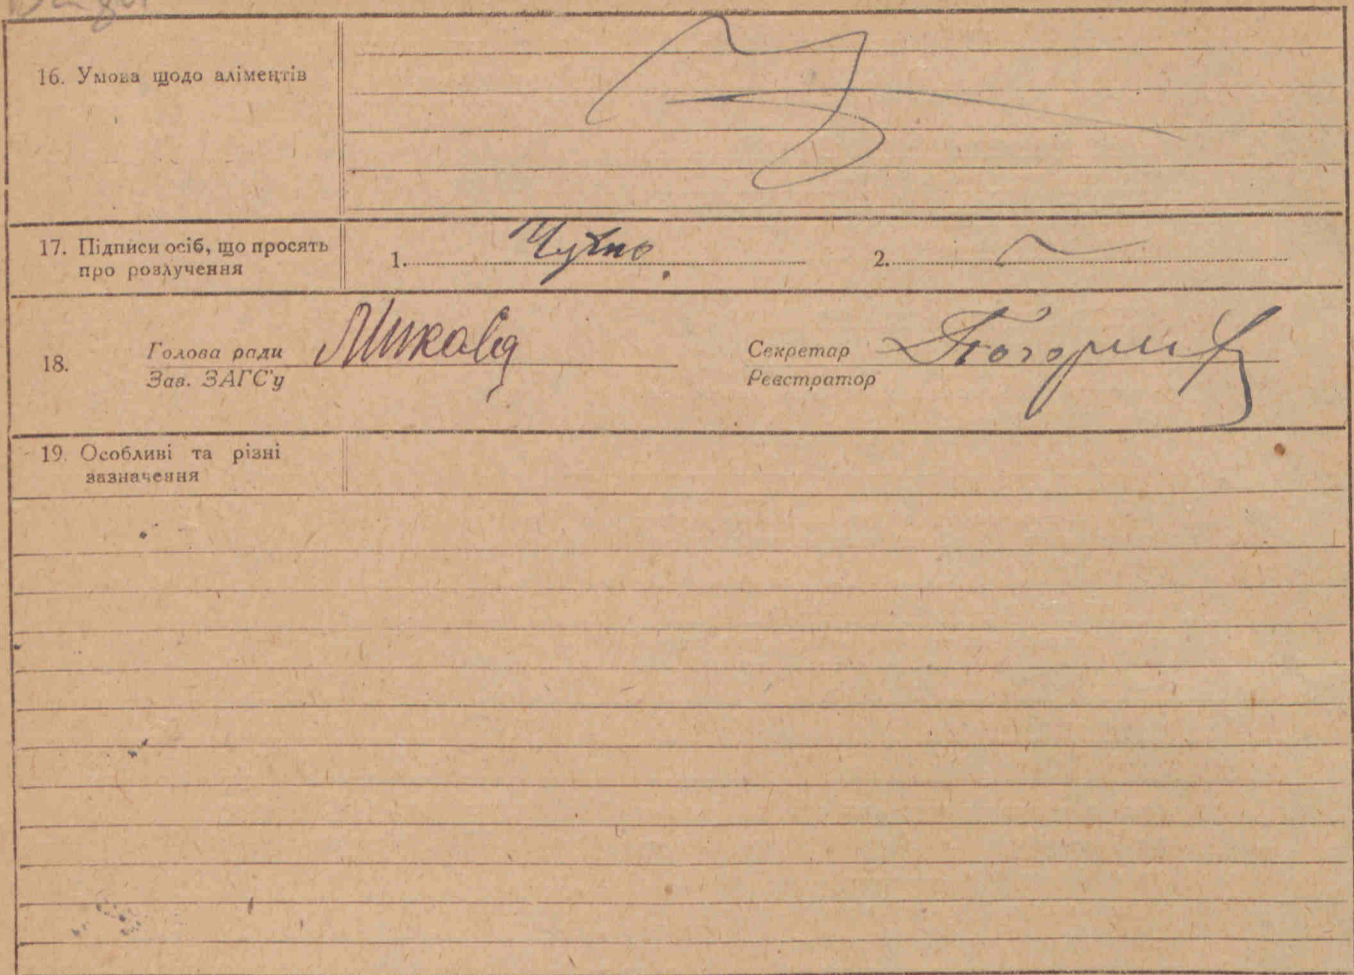 16. Умова щодо аліментів
17. Підписи осіб, що просять
про розлучення
1.
2.
18.
Голова ради
Зав. ЗАГС'у
Секретар
Реєстратор
19. Особливі та різні
зазначення